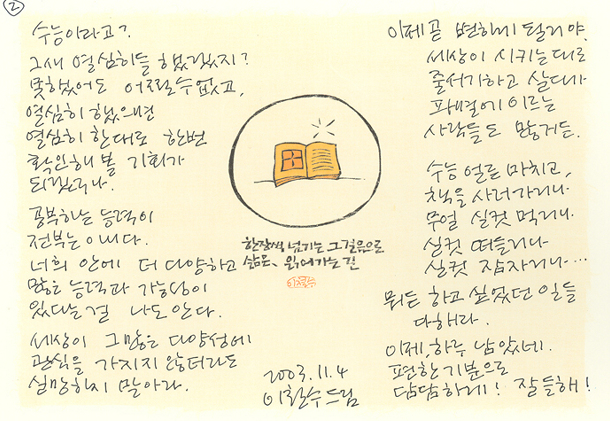 ②
수능이라고?
그새 열심히들 했겠지?
못했어도 어쩔수없고,
열심히 했으면
열심히 한대로 한번
확인해 볼 기회가
되겠구나.
공부하는 능력이
전부는 아니다.
너희 안에 더 다양하고
많은 능력과 가능성이
있다는걸 나도 안다.
세상이 그 많은 다양성에
관심을 가지지 않더라도
실망하지 말아라.
한장씩 넘기는 그 걸음으로
삶은, 읽어가는 길
이철수
2003.11.4
이철수 드림
이제 곧 변하게 될거야.
세상이 시키는대로
줄서기하고 살다가
파멸에 이르는
사람들도 많거든.
수능 얼른 마치고,
책을 사러가거나
무얼 실컷 먹거나
실컷 떠들거나
실컷 잠자거나…
뭐든 하고 싶었던 일들
다해라.
이제, 하루 남았네.
편한 기분으로
담담하게! 잘들해!